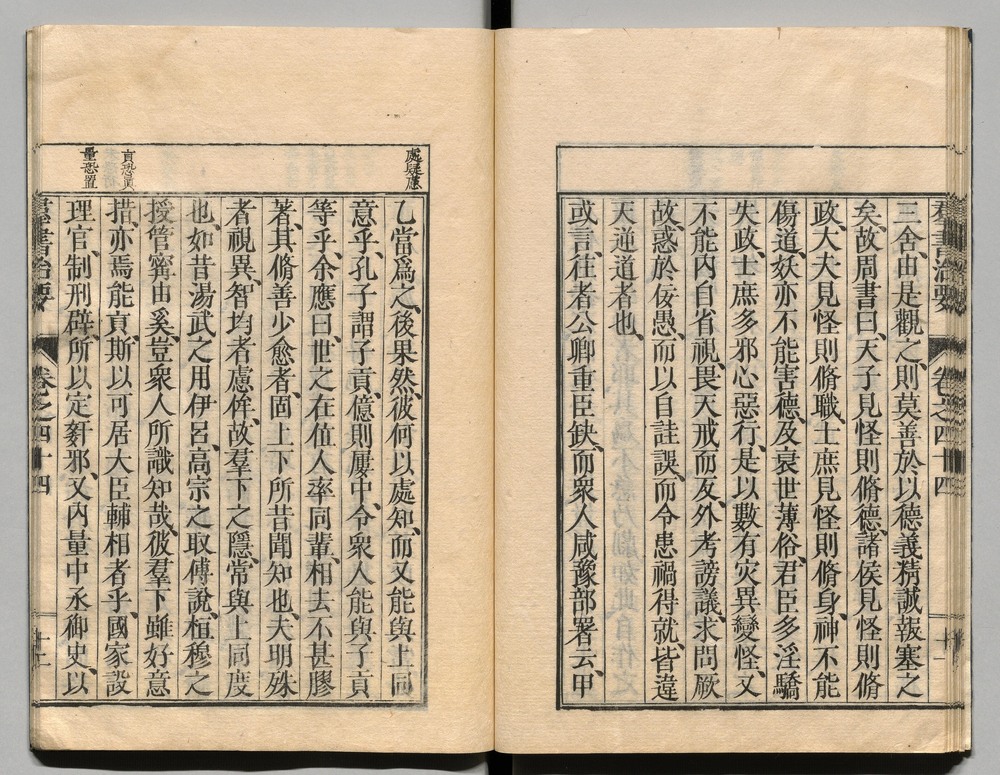 三舍、由是觀之、則莫善於以德義精誠報塞之
矣、故周書曰、天子見怪則脩德、諸侯見怪則脩
政、大夫見怪則脩職、士庶見怪則脩身、神不能
傷道、妖亦不能害德、及衰世薄俗、君臣多淫驕
失政、士庶多邪心惡行、是以數有灾異變怪、又
不能內自省視、畏天戒、而反外考謗議、求問厥
故、惑於佞愚、而以自詿誤、而令患禍得就、皆違
天逆道者也、
或言、往者公卿重臣缺、而衆人咸豫部署云、甲
羣書治要
卷之四十四
乙當爲之、後果然、彼何以處知、而又能與上同
意乎、孔子謂子貢、億則屢中、令衆人能與子貢
等乎、余應曰、世之在位人率同輩、相去不甚膠
著、其脩善少愈者、固上下所昔聞知也、夫明殊
者視異、智均者慮侔、故羣下之隱、常與上同度
也、如昔湯武之用伊呂、高宗之取傅說、桓穆之
授管甯由奚、豈衆人所識知哉、彼羣下雖好意
措、亦焉能貢、斯以可居大臣輔相者乎、國家設
理官、制刑辟、所以定姧邪、又內量中丞御史、以
處疑慮
貢恐眞
量恐置
羣書治要
卷之四十四
十一